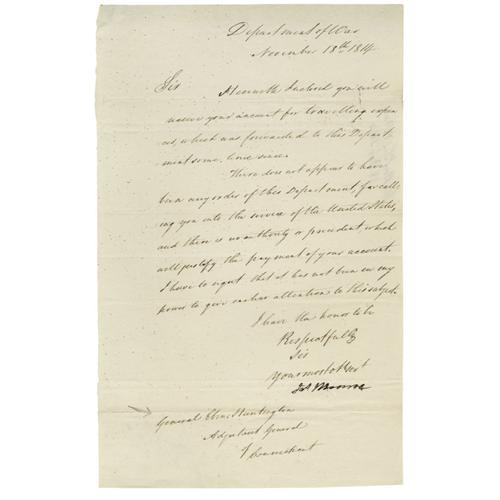 Department of War
November 18th 1814
Sir
Herewith Inclosed you will
receive your account for travelling expen
ces, which was forwarded to this Depart
ment some time since.
There does not appear to have
been any order of this Department, for call-
ing you into the service of the United States,
and there is no authority or precedent which
will justify the payment of your account.
I have to regret that it has not been in my
power to give earlier attention to this subject.
I have the honor to be
Respectfully
Sir
Your most ob Sert
Jas Monroe
General Eben. Huntington
Adjutant General
of Connecticut